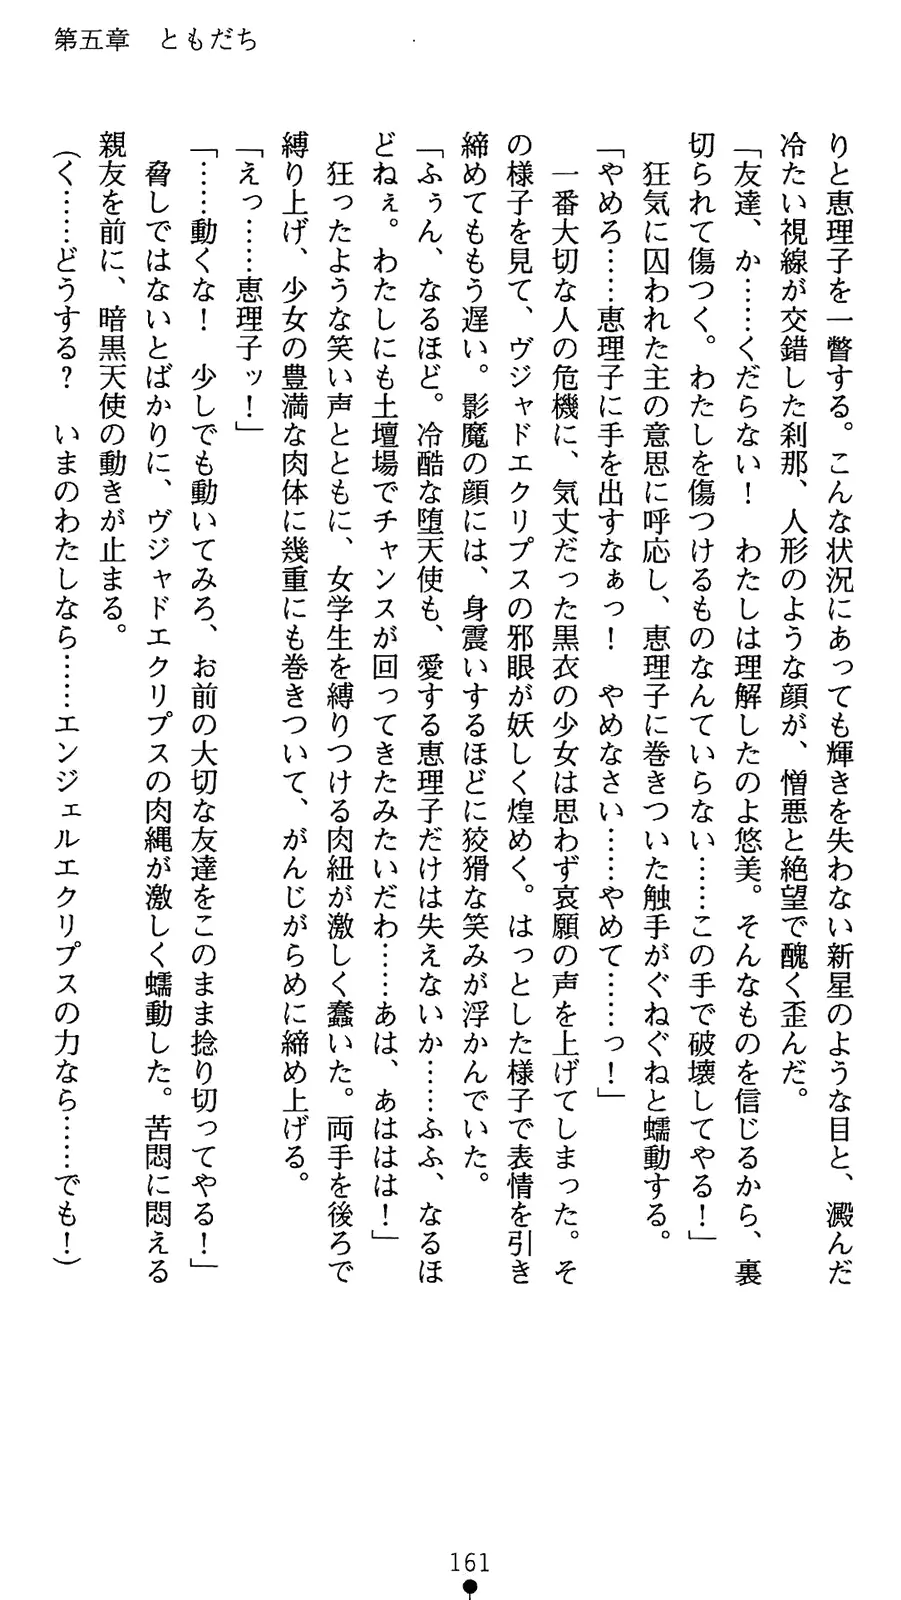 第五章　ともだち
りと恵理子を一瞥する。こんな状況にあっても輝きを失わない新星のような目と、澱んだ
冷たい視線が交錯した刹那、人形のような顔が、憎悪と絶望で醜く歪んだ。
「友達、か……くだらない！　わたしは理解したのよ悠美。そんなものを信じるから、裏
切られて傷つく。わたしを傷つけるものなんていらない……この手で破壊してやる！」
　狂気に囚われた主の意思に呼応し、恵理子に巻きついた触手がぐねぐねと蠕動する。
「やめろ……恵理子に手を出すなぁっ！　やめなさい……やめて……っ！」
　一番大切な人の危機に、気丈だった黒衣の少女は思わず哀願の声を上げてしまった。そ
の様子を見て、ヴジャドエクリプスの邪眼が妖しく煌めく。はっとした様子で表情を引き
締めてももう遅い。影魔の顔には、身震いするほどに狡猾な笑みが浮かんでいた。
「ふぅん、なるほど。冷酷な堕天使も、愛する恵理子だけは失えないか……ふふ、なるほ
どねぇ。わたしにも土壇場でチャンスが回ってきたみたいだわ……あは、あははは！」
　狂ったような笑い声とともに、女学生を縛りつける肉紐が激しく蠢いた。両手を後ろで
縛り上げ、少女の豊満な肉体に幾重にも巻きついて、がんじがらめに締め上げる。
「えっ……恵理子ッ！」
「……動くな！　少しでも動いてみろ、お前の大切な友達をこのまま捻り切ってやる！」
　脅しではないとばかりに、ヴジャドエクリプスの肉縄が激しく蠕動した。苦悶に悶える
親友を前に、暗黒天使の動きが止まる。
（く……どうする？　いまのわたしなら……エンジェルエクリプスの力なら……でも！）
161